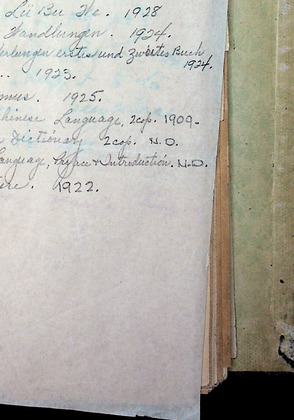 Lü Bu We. 1928
Wandlungen. 1924.
erstes und zweites Buch
1924.
.. 1923.
mus. 1925.
hinese Language, 2cop. 1909-
Dictionary 2cop. N.D.
anguage, Preface & Introduction. N.D.
ure. 1922.